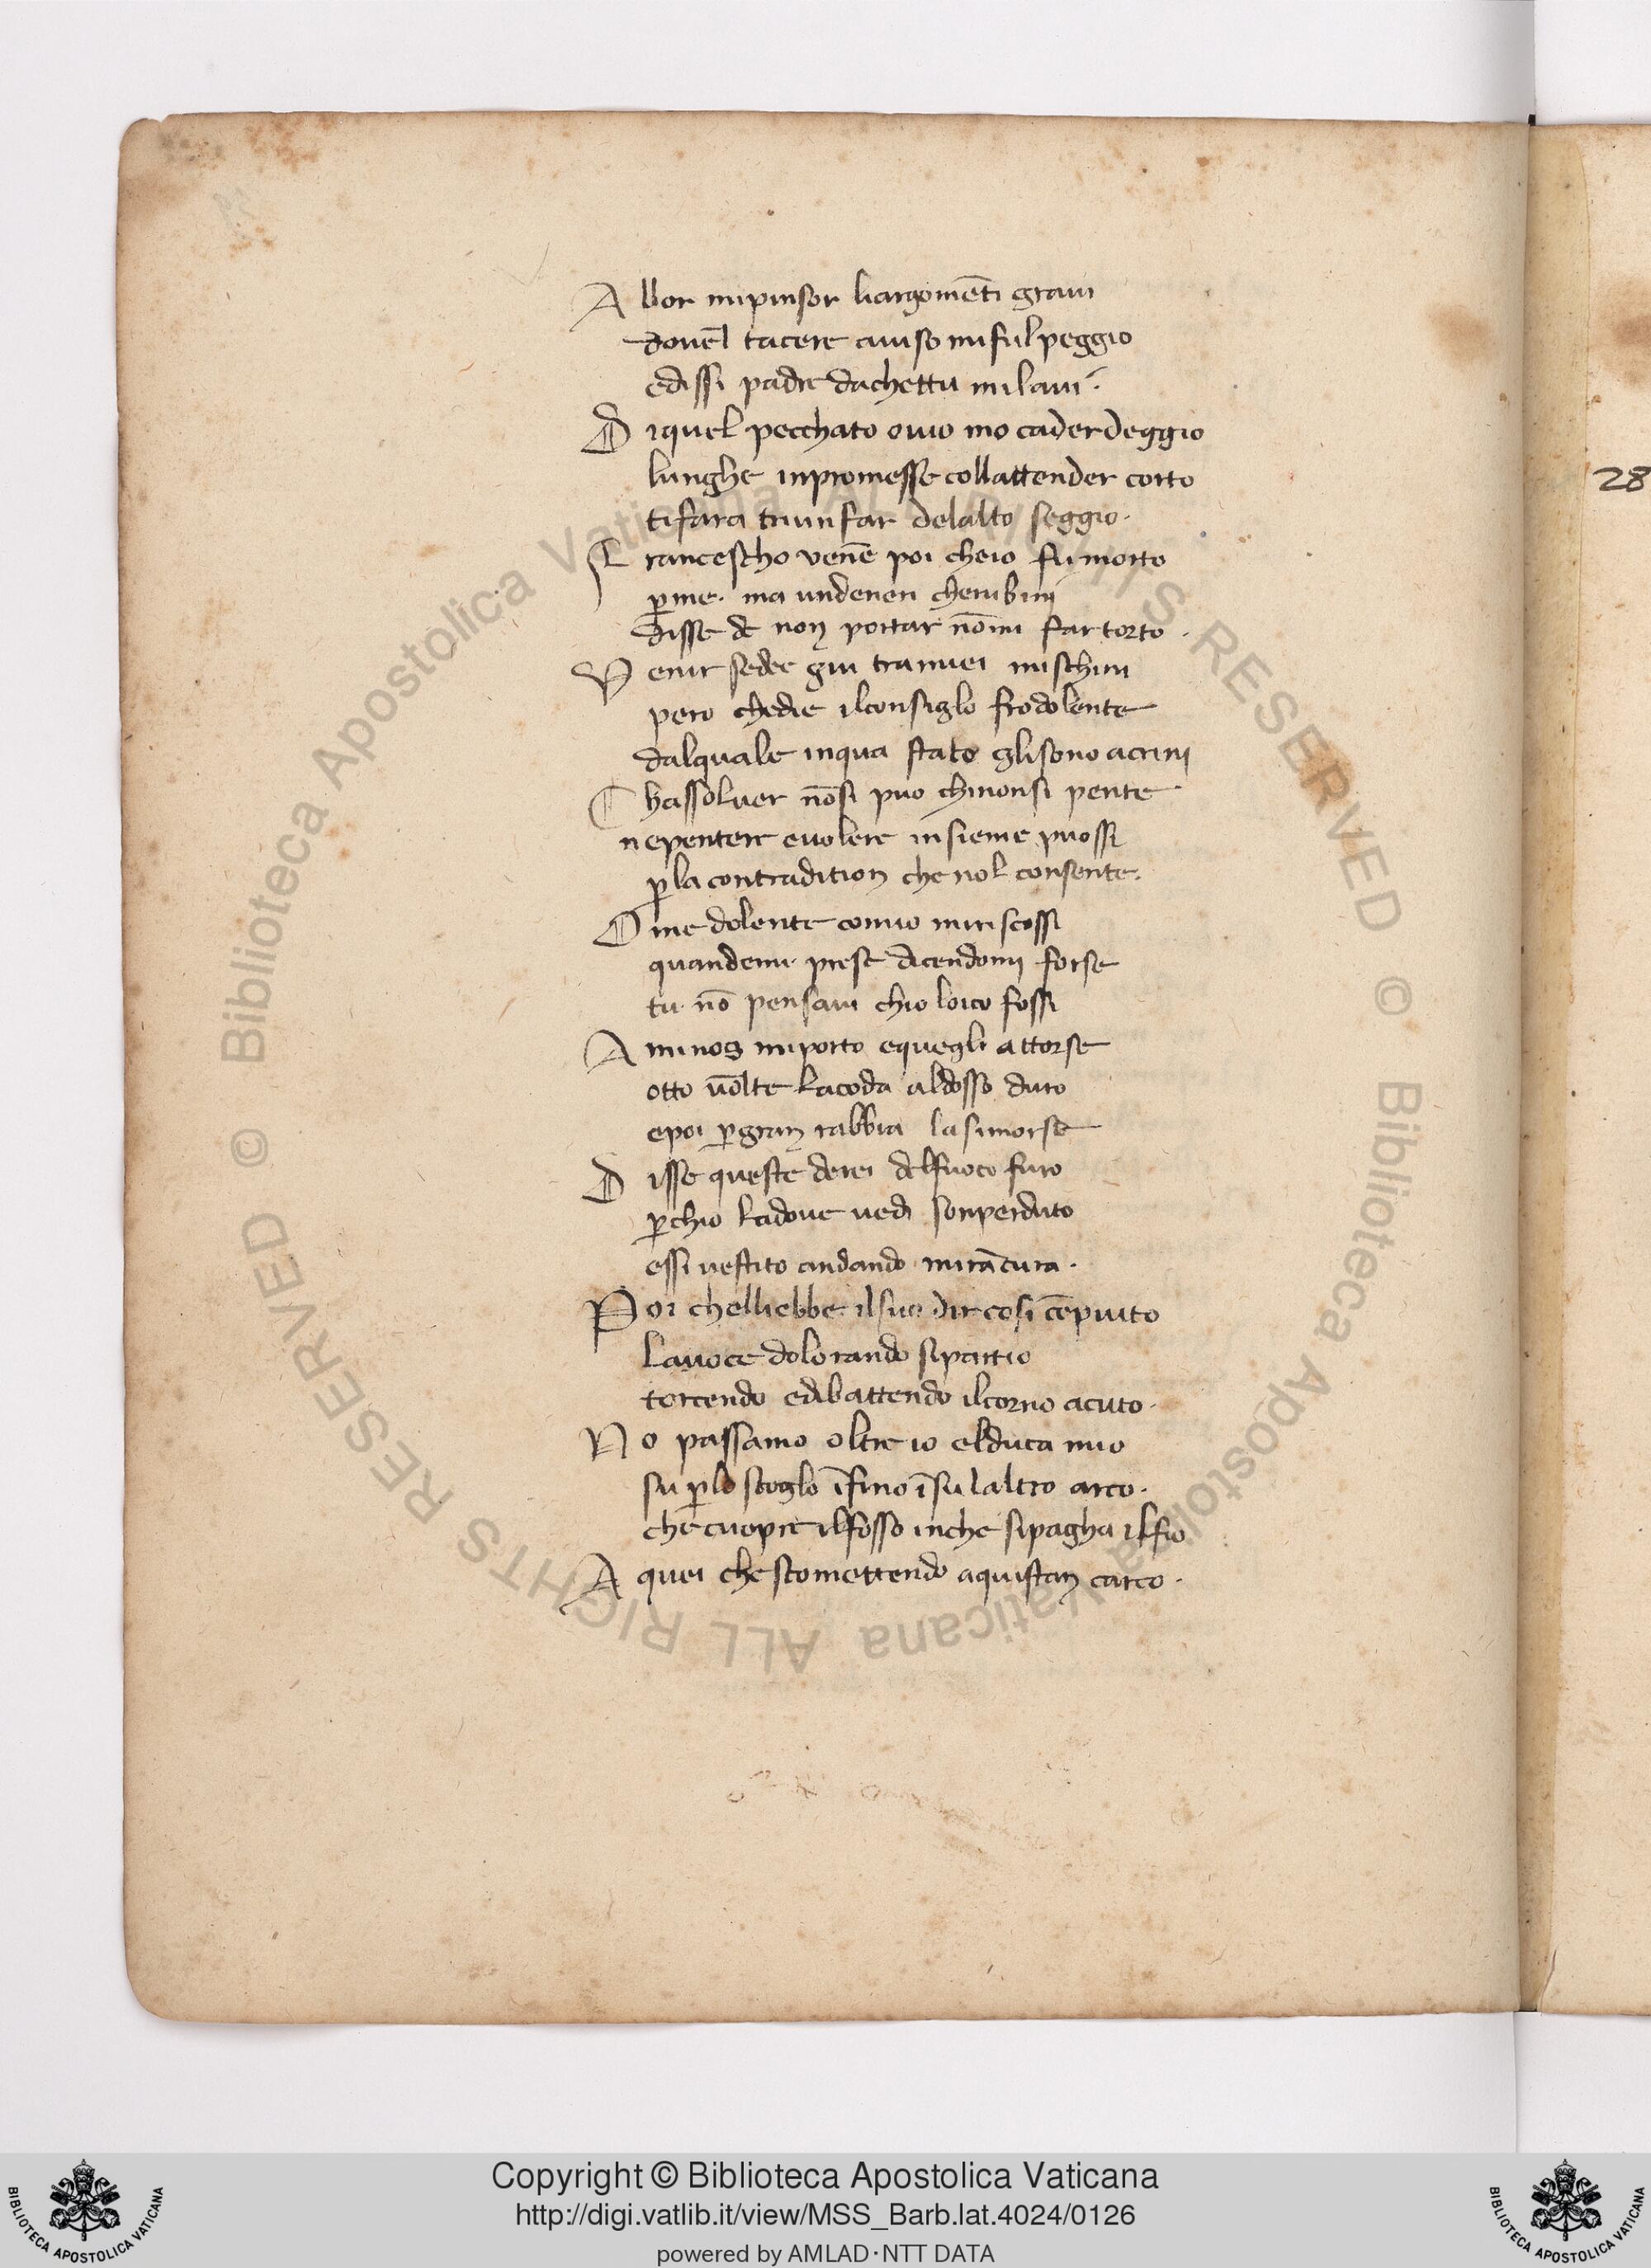 A llor mi pinser liargomēti graui
douel̄ tacere auiso mi ful peggio
e dissi padre dachettu mi laui
D iquel pecchato ouio mo cader deggio
lunghe inpromesse collattender corto
ti fara triunfar delalto seggio.
F rancescho venē poi cheio fu morto
ꝑme. ma un deneri cherubini
disse de non portar nōmi far torto.
V enir sedee giu tramiei mischini
pero chedie il consiglo frodolente
dal quale in qua stato gli sono a crini
C hassoluer nōsi puo chinonsi pente
ne pentere e uolere insieme puossi
ꝑla contradition che nol consente.
O me dolente comio mi riscossi
quandemi prese dicendomi forse
tu nō pensaui chio loico fossi
A minos mi porto e quegli attorse
otto uolte la coda al dosso duro
e poi ꝑgran rabbia lasi morse
D isse queste derei del fuoco furo
ꝑchio la doue uedi son perduto
essi uestito andando mi rācura.
P oi chelliebbe il suo dir cosi cōpiuto
la uoce dolorando si partio
torcendo e dibattendo il corno acuto.
N o passamo oltre io el duca mio
su ꝑlo scoglo īfino īsu laltro arco.
che cuopre il fosso in che si pagha il fio
A quei che scomettendo aquistan carco.
28
© Biblioteca Apostolica Vaticana ALL RIGHTS RESERVED
© Biblioteca Apostolica Vaticana ALL RIGHTS RESERVED
Copyright © Biblioteca Apostolica Vaticana
http://digi.vatlib.it/view/MSS_Barb.lat.4024/0126
powered by AMLAD·NTT DATA
BIBLIOTECA APOSTOLICA VATICANA
BIBLIOTECA APOSTOLICA VATICANA